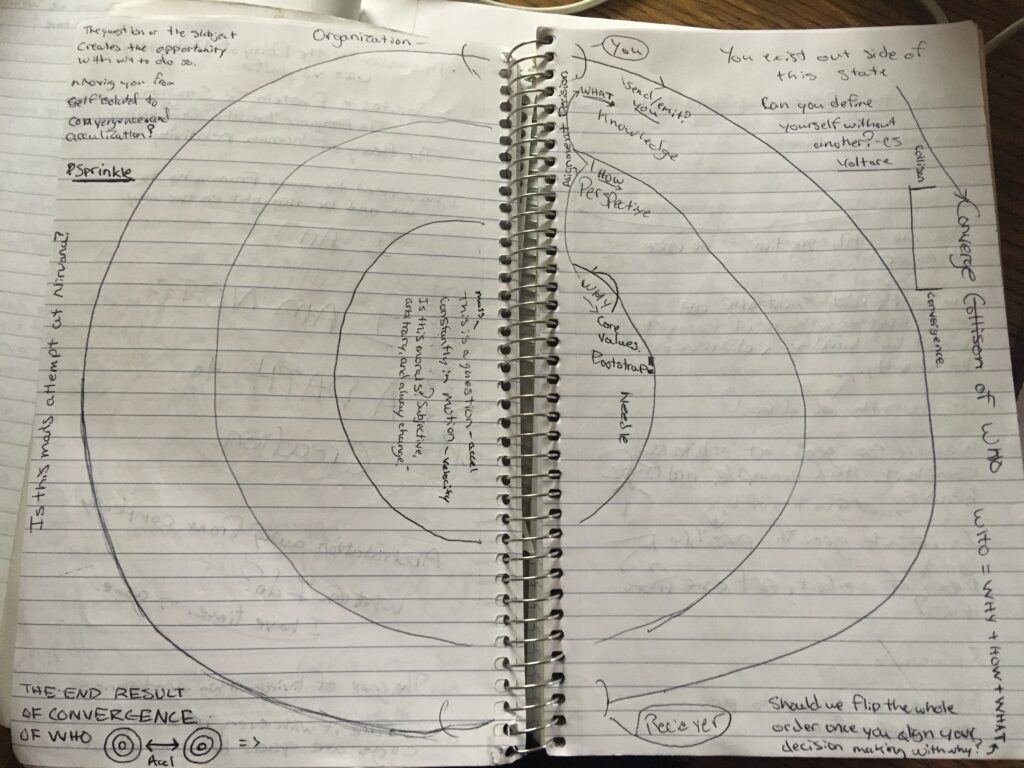 The question or the subject
creates the opportunity
with will to do so.
moving you from
self isolated to
convergence and
acculication?
Sprinkle
Is this mads attempt at Nirvana?
Organization -
mads ~
This is a question - accel
Constantly in motion ~ velocity
Is this morals? Subjective,
arbitrary, and always change, -
THE END RESULT
OF CONVERGENCE
OF WHO
Accel
=>
You
Send/emit?
you
WHAT
Knowledge
Alignment Passion
HOW
Perspective
WHY
Core
values.
Bootstrap
Needle
Reciever
You exist out side of
this state
Can you define
yourself without
another? - es
Voltare
Collison
Convergence
Converge Collison of WHO
WHO = WHY + HOW + WHAT
Should we flip the whole
order once you align your
decision making with why?